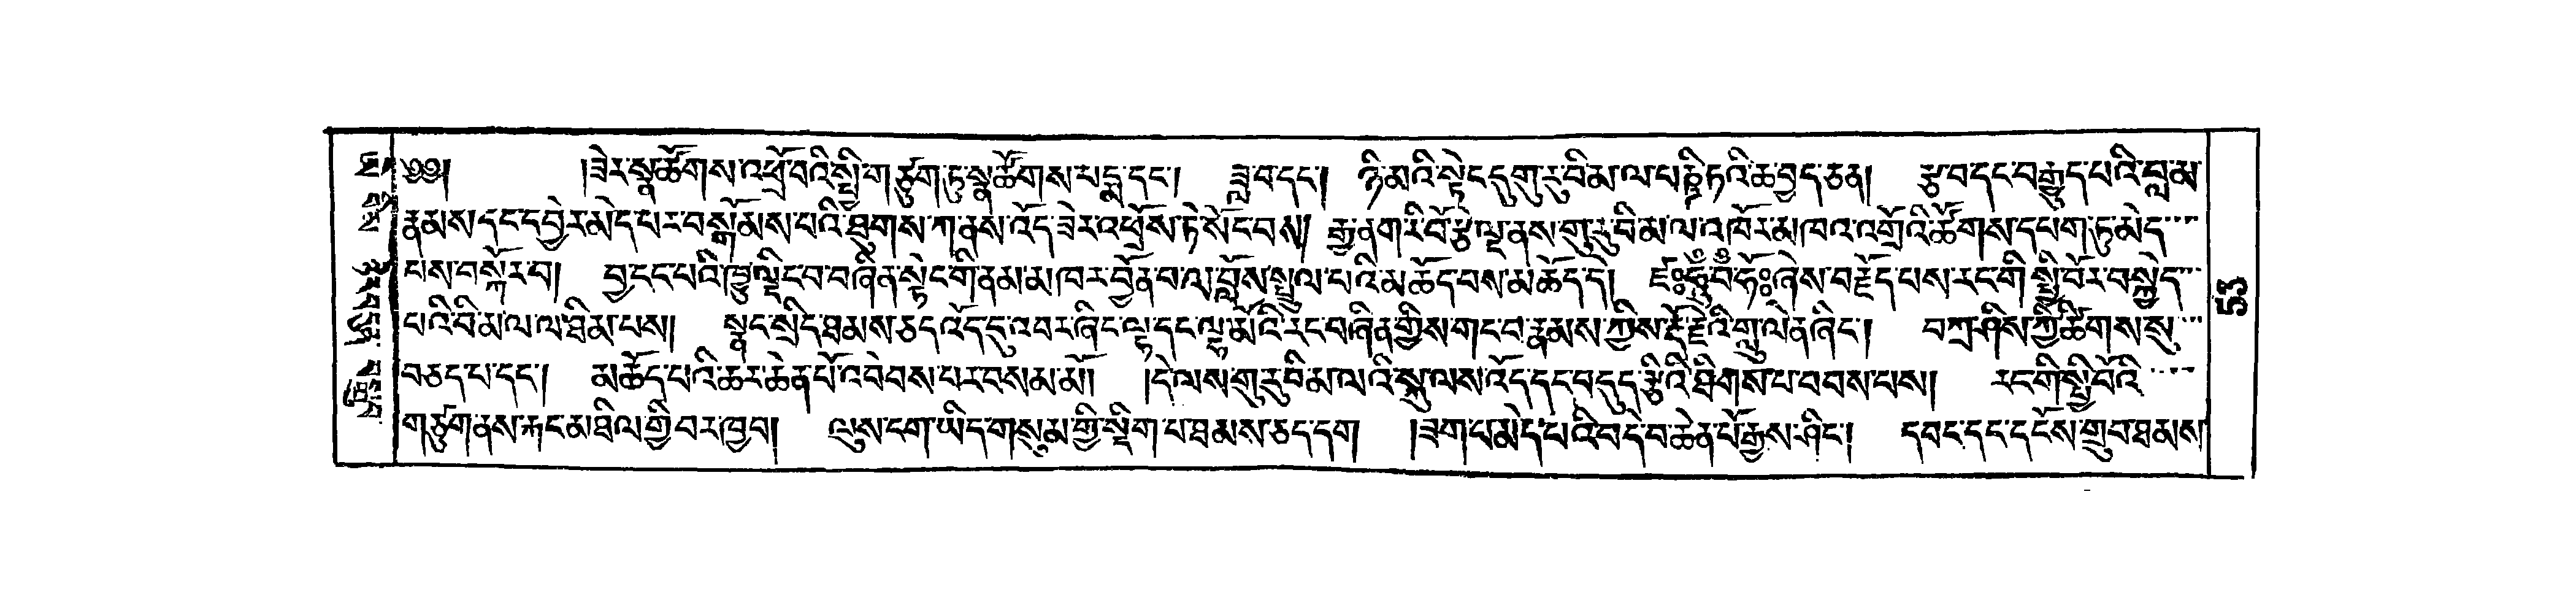 ༄༅། །ཟེར་སྣ་ཚོགས་འཕྲོ་བའི་སྤྱི་གཙུག་ཏུ་སྣ་ཚོགས་པདྨ་དང་། ཟླ་བ་དང་། ཉི་མའི་སྟེང་དུ་གུ་རུ་བི་མ་ལ་པཎྜི་ཏའི་ཆ་བྱད་ཅན། རྩ་བ་དང་བརྒྱུད་པའི་བླ་མ་
རྣམས་དང་དབྱེར་མེད་པར་བསྒོམས་པའི་ཐུགས་ཀ་ནས་འོད་ཟེར་འཕྲོས་ཏེ་སོང་བས། རྒྱ་ནག་རི་བོ་རྩེ་ལྔ་ནས་གུ་རུ་བི་མ་ལ་འཁོར་མཁའ་འགྲོའི་ཚོགས་དཔག་ཏུ་མེད་
པས་བསྐོར་བ། བྱ་དང་པའི་ཁྱུ་ལྡིང་བ་བཞིན་སྟེང་གི་ནམ་མཁར་བྱོན་བ་ལ་བློས་སྤྲུལ་པའི་མཆོད་པས་མཆོད་དེ། ཛཿཧཱུྃ་བཾ་ཧོཿཞེས་བརྗོད་པས་རང་གི་སྤྱི་བོར་བསྐྱེད་
པའི་བི་མ་ལ་ལ་ཐིམ་པས། སྣང་སྲིད་ཐམས་ཅད་འོད་དུ་འབར་ཞིང་ལྷ་དང་ལྷ་མོའི་རང་བཞིན་གྱིས་གང་བ་རྣམས་ཀྱིས་རྡོ་རྗེའི་གླུ་ལེན་ཞིང་། བཀྲ་ཤིས་ཀྱི་ཚིགས་སུ་
བཅད་པ་དང་། མཆོད་པའི་ཆར་ཆེན་པོ་འབེབས་པར་བསམ་མོ། །དེ་ལས་གུ་རུ་བི་མ་ལའི་སྐུ་ལས་འོད་དང་བདུད་རྩིའི་ཐིགས་པ་བབས་པས། རང་གི་སྤྱི་བོའི་
གཙུག་ནས་རྐང་མཐིལ་གྱི་བར་ཁྱབ། ལུས་ངག་ཡིད་གསུམ་གྱི་སྡིག་པ་ཐམས་ཅད་དག །ཟག་པ་མེད་པའི་བདེ་བ་ཆེན་པོ་རྒྱས་ཤིང་། དབང་དང་དངོས་གྲུབ་ཐམས་